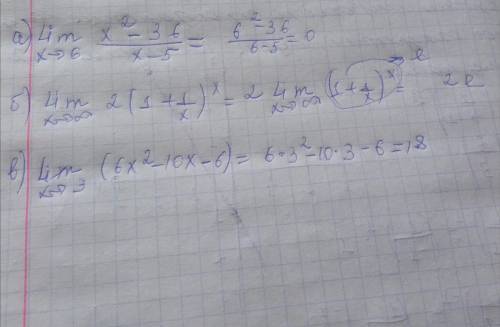 а) lim x→6 (x² − 36)/(x − 5) = (6² − 36)/(6 − 5) = 0
б) lim x→∞ 2(1 + 1/x)ˣ = 2 lim x→∞ (1 + 1/x)ˣ → e = 2e
в) lim x→3 (6x² − 10x − 6) = 6·3² − 10·3 − 6 = 18